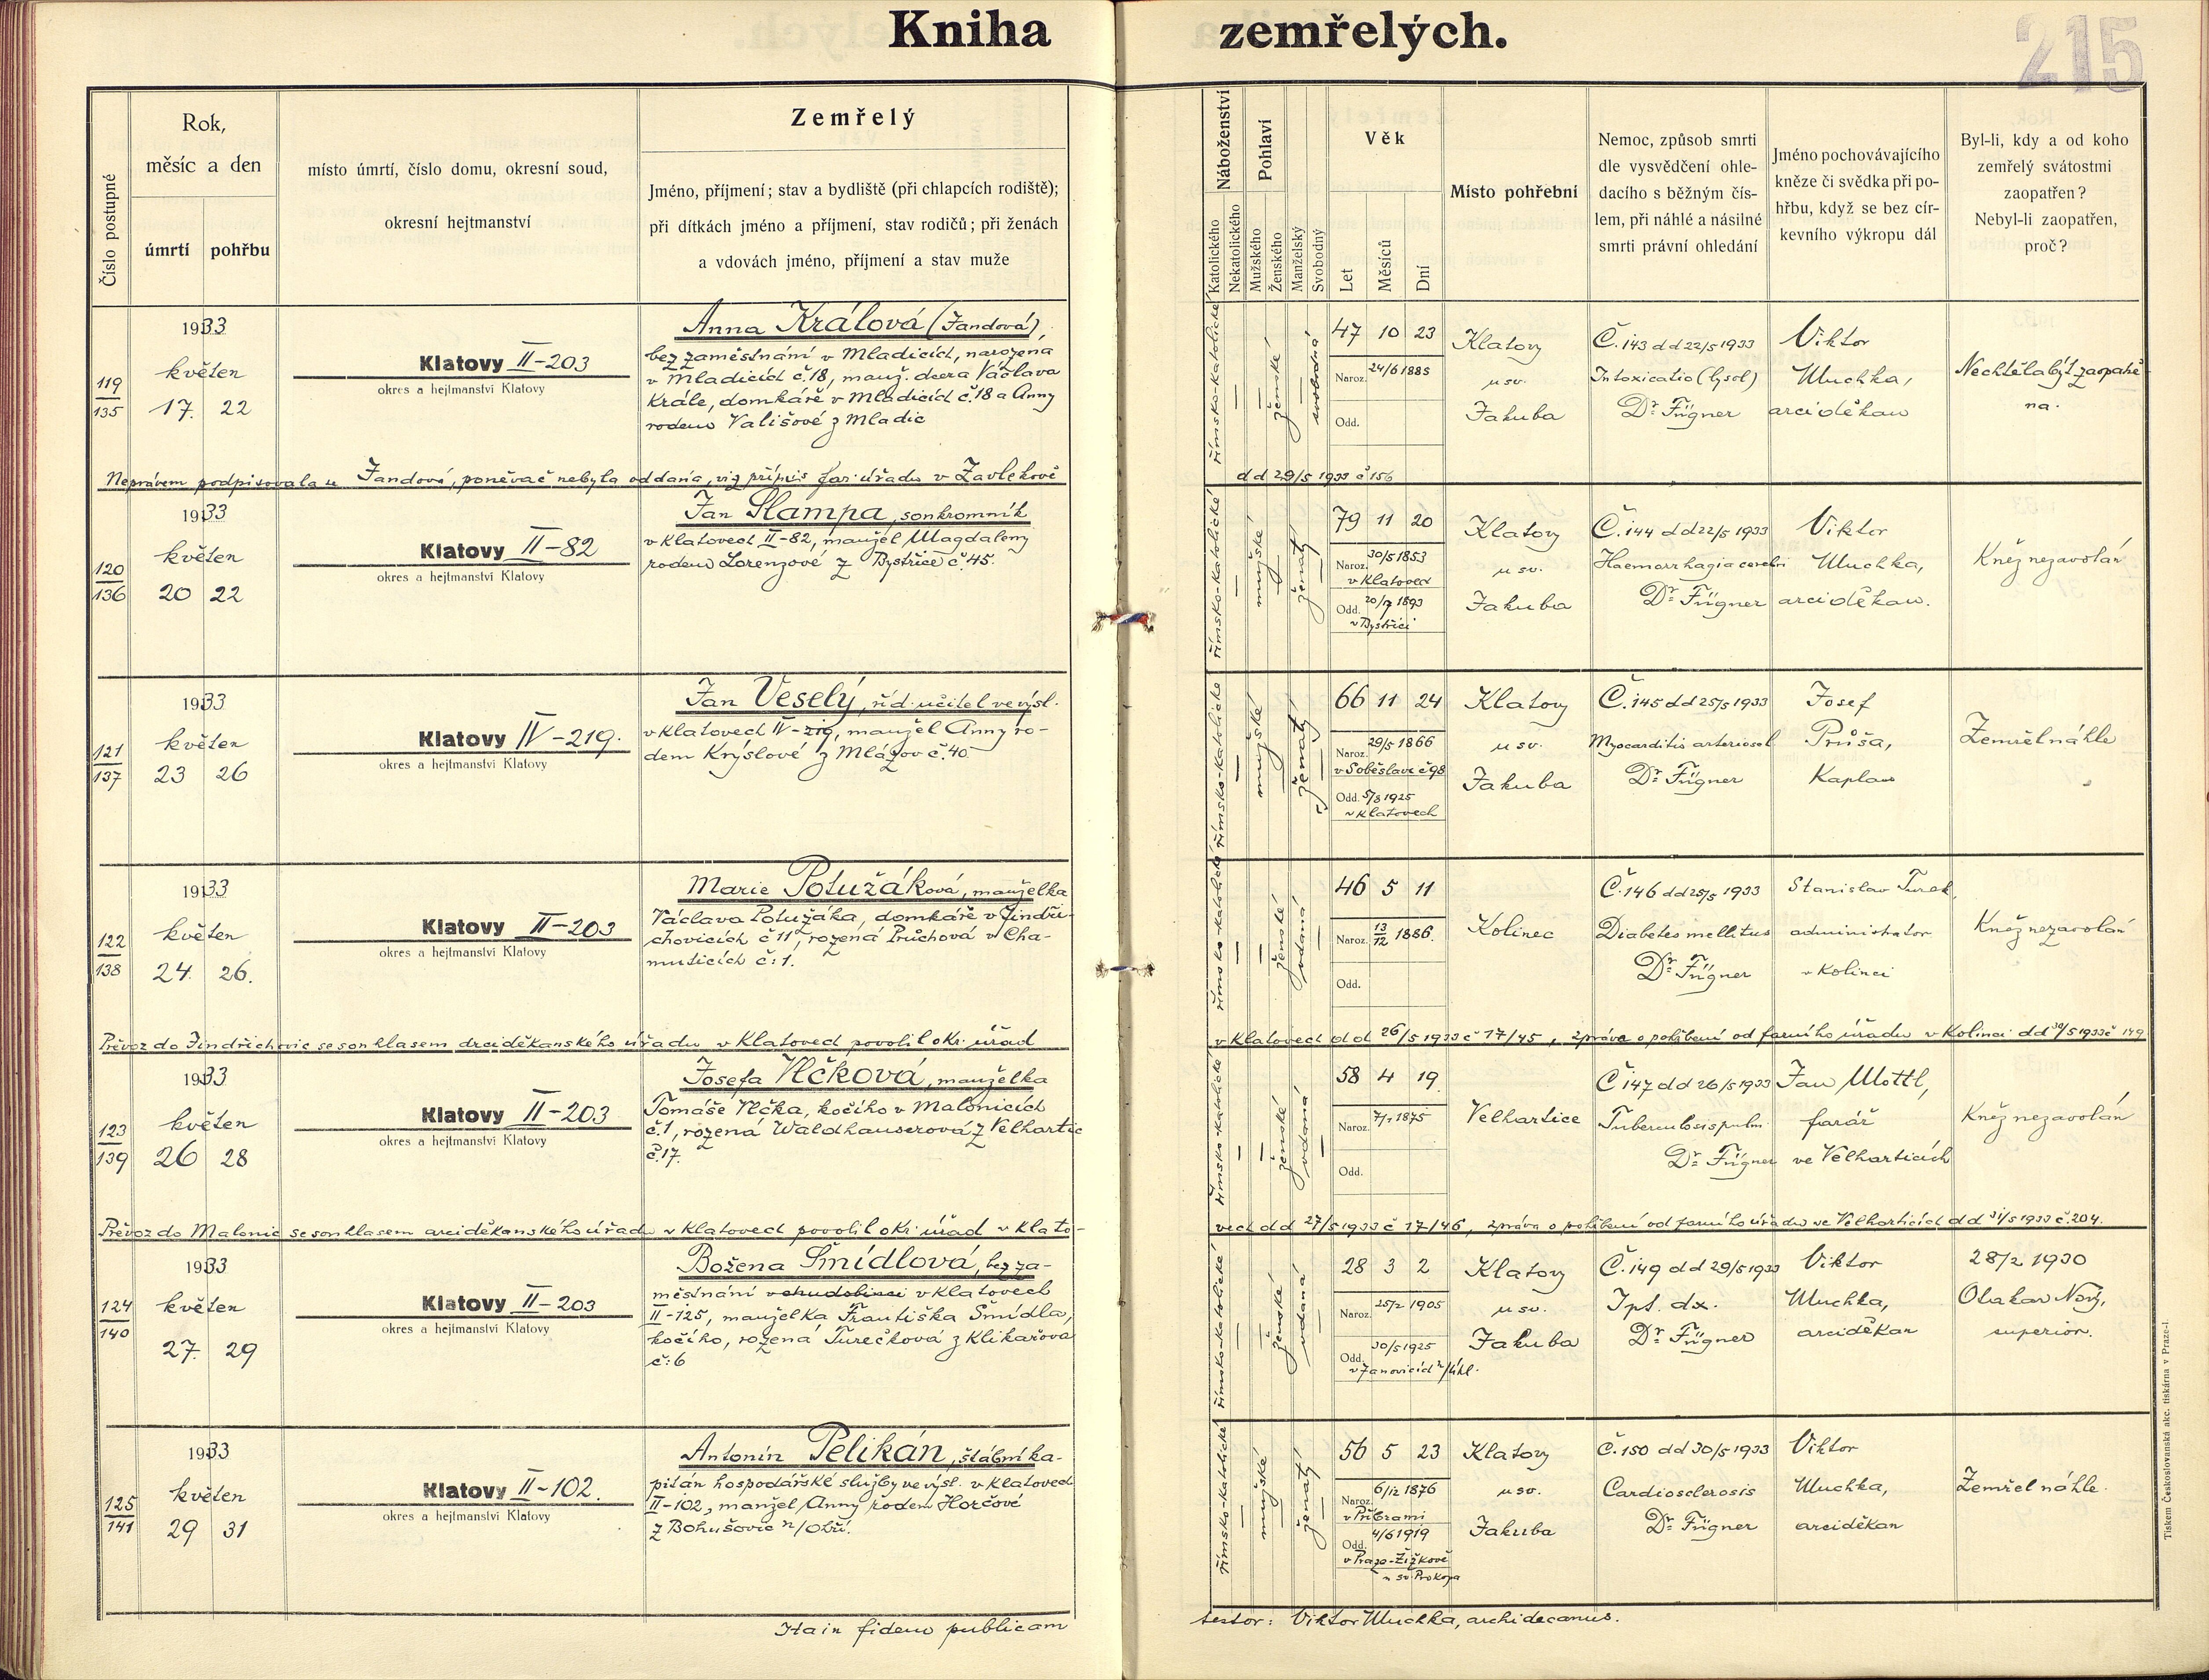 Kniha zemřelých.
215
Číslo postupné
Rok,
měsíc a den
úmrtí pohřbu
místo úmrtí, číslo domu, okresní soud,
okresní hejtmanství
Zemřelý
Jméno, příjmení; stav a bydliště (při chlapcích rodiště);
při dítkách jméno a příjmení, stav rodičů; při ženách
a vdovách jméno, příjmení a stav muže
Náboženství
Katolického
Nekatolického
Pohlaví
Mužského
Ženského
Manželský
Svobodný
Věk
Let
Měsíců
Dní
Místo pohřební
Nemoc, způsob smrti
dle vysvědčení ohle-
dacího s běžným čís-
lem, při náhlé a násilné
smrti právní ohledání
Jméno pochovávajícího
kněze či svědka při po-
hřbu, když se bez cír-
kevního výkropu dál
Byl-li, kdy a od koho
zemřelý svátostmi
zaopatřen?
Nebyl-li zaopatřen,
proč?
119
135
1933
květen
17. 22
Klatovy II-203
okres a hejtmanství Klatovy
Anna Králová (Jandová),
bez zaměstnání v Mladicích, narozená
v Mladicích č.18, manž. dcera Václava
Krále, domkáře v Mladicích č.18 a Anny
rodem Vališové z Mladic
římsko-katolické
ženské
svobodná
47 10 23
Naroz. 24/6 1885
Odd.
Klatovy
u sv.
Jakuba
Č. 143 dd 22/5 1933
Intoxicatio (lysol)
Dr. Fügner
Viktor
Muchka,
arciděkan
Nechtěla být zaopatře-
na.
Neprávem podpisovala se Jandová, poněvač nebyla oddána, viz přípis far. úřadu v Zavlekově
dd 29/5 1933 č 156
120
136
1933
květen
20 22
Klatovy II-82
okres a hejtmanství Klatovy
Jan Šlampa, soukromník
v Klatovech II-82, manžel Magdaleny
rodem Lorenzové z Bystřice č.45.
římsko-katolické
mužské
ženatý
79 11 20
Naroz. 30/5 1853
v Klatovech
Odd. 20/7 1893
v Bystřici
Klatovy
u sv.
Jakuba
Č. 144 dd 22/5 1933
Haemorrhagia cerebri
Dr. Fügner
Viktor
Muchka,
arciděkan.
Kněz nezavolán
121
137
1933
květen
23 26
Klatovy IV-219.
okres a hejtmanství Klatovy
Jan Veselý, říd. učitel ve výsl.
v Klatovech IV-219, manžel Anny ro-
dem Krýslové z Mlázov č.40.
římsko-katolické
mužské
ženatý
66 11 24
Naroz. 29/5 1866
v Soběslavi č 98
Odd. 5/8 1925
v Klatovech
Klatovy
u sv.
Jakuba
Č. 145 dd 25/5 1933
Myocarditis arterioscl
Dr. Fügner
Josef
Průša,
Kaplan
Zemřel náhle
122
138
1933
květen
24 26.
Klatovy II-203
okres a hejtmanství Klatovy
Marie Potužáková, manželka
Václava Potužáka, domkáře v Jindři-
chovicích č 11, rozená Průchová v Cha-
muticích č: 1.
římsko-katolické
ženské
vdaná
46 5 11
Naroz. 13/12 1886.
Odd.
Kolinec
Č. 146 dd 25/5 1933
Diabetes mellitus
Dr. Fügner
Stanislav Turek,
administrator
v Kolinci
Kněz nezavolán
Převoz do Jindřichovic se souhlasem arciděkanského úřadu v Klatovech povolil okr. úřad
v Klatovech dd 26/5 1933 č 17/45, zpráva o pohřbení od farního úřadu v Kolinci dd 30/5 1933 č 149
123
139
1933
květen
26 28
Klatovy II-203
okres a hejtmanství Klatovy
Josefa Vlčková, manželka
Tomáše Vlčka, kočího v Malonicích
č.1, rozená Waldhauserová z Velhartic
č.17.
římsko-katolické
ženské
vdaná
58 4 19
Naroz. 7/1 1875
Odd.
Velhartice
Č 147 dd 26/5 1933
Tuberculosis pulm.
Dr. Fügner
Jan Mottl,
farář
ve Velharticích
Kněz nezavolán
Převoz do Malonic se souhlasem arciděkanského úřadu v Klatovech povolil okr. úřad v Klato-
vech dd 27/5 1933 č 17/46, zpráva o pohřbení od farního úřadu ve Velharticích dd 31/5 1933 č. 204.
124
140
1933
květen
27. 29
Klatovy II-203
okres a hejtmanství Klatovy
Božena Šmídlová, bez za-
městnání v chudobinci v Klatovech
II-125, manželka Františka Šmídla,
kočího, rozená Turečková z Klikařova
č: 6
římsko-katolické
ženské
vdaná
28 3 2
Naroz. 25/2 1905
Odd. 30/5 1925
v Janovicích n/Úhl.
Klatovy
u sv.
Jakuba
Č. 149 dd 29/5 1933
Tpt. dx.
Dr. Fügner
Viktor
Muchka,
arciděkan
28/2 1930
Otakar Nový,
superior.
125
141
1933
květen
29 31
Klatovy II-102.
okres a hejtmanství Klatovy
Antonín Pelikán, štábní ka-
pitán hospodářské služby ve výsl. v Klatovech
II-102, manžel Anny rodem Horčové
z Bohušovic n/Ohří.
římsko-katolické
mužské
ženatý
56 5 23
Naroz. 6/12 1876
v Příbrami
Odd. 4/6 1919
v Praze-Žižkově
u sv. Prokopa
Klatovy
u sv.
Jakuba
Č. 150 dd 30/5 1933
Cardiosclerosis
Dr. Fügner
Viktor
Muchka,
arciděkan
Zemřel náhle.
Ita in fidem publicam
testor: Viktor Muchka, archidecanus.
Tiskem Československá akc. tiskárna v Praze-I.